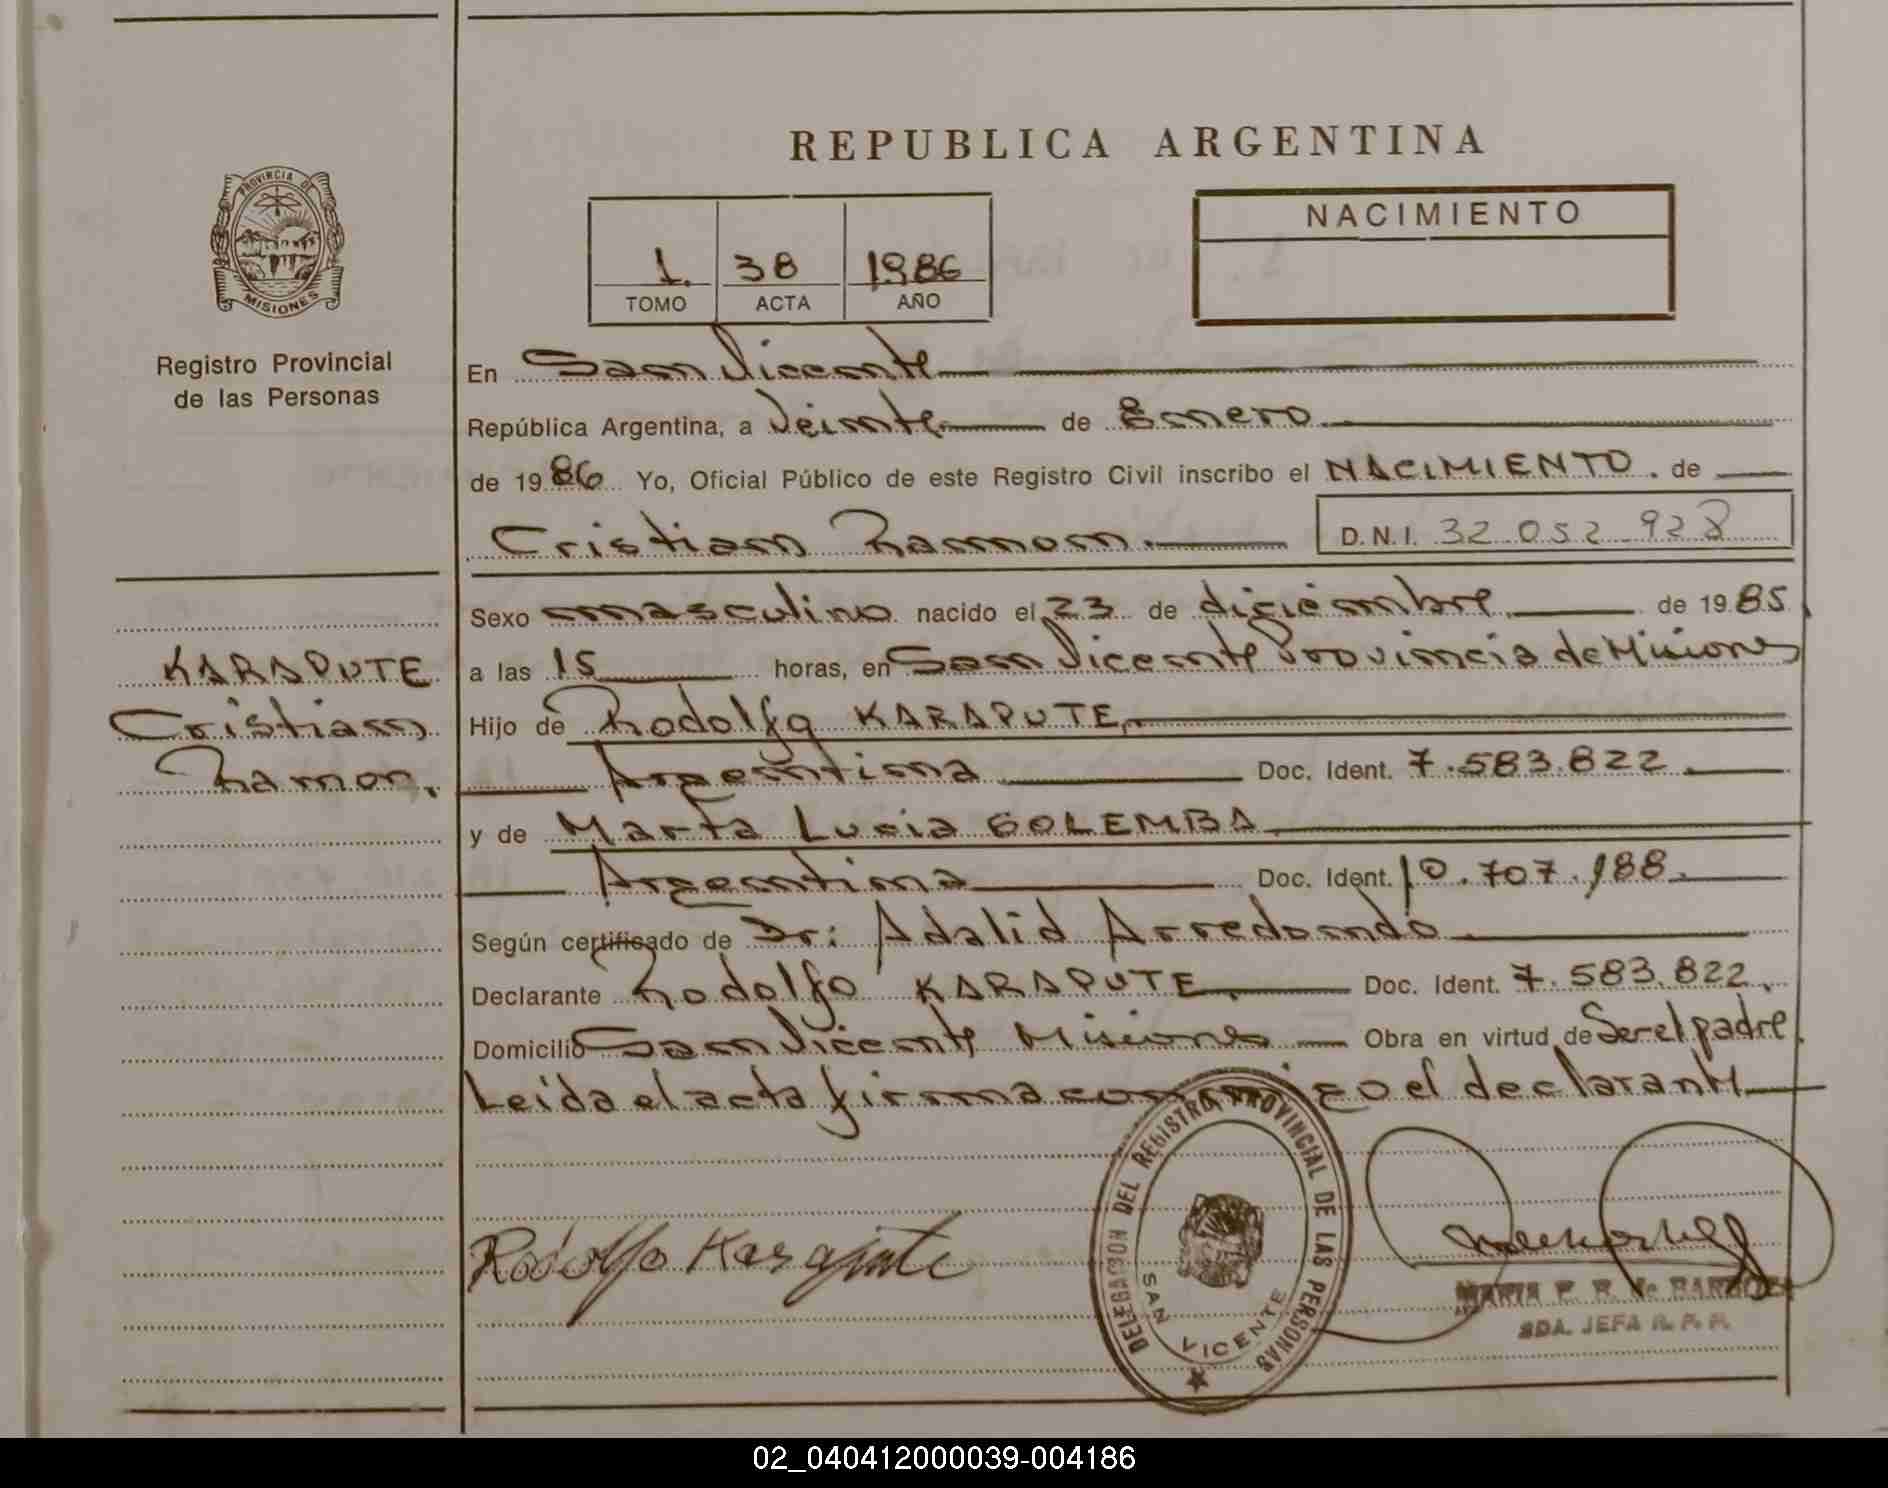 REPUBLICA ARGENTINA
PROVINCIA DE MISIONES
Registro Provincial
de las Personas
1. 38 1986
TOMO ACTA AÑO
NACIMIENTO
En San Vicente
República Argentina, a Veinte de Enero
de 1986 Yo, Oficial Público de este Registro Civil inscribo el NACIMIENTO. de
Cristian Ramon. D.N.I. 32 052 928
KARAPUTE
Cristian
Ramon.
Sexo masculino nacido el 23 de diciembre de 1985
a las 15 horas, en San Vicente Provincia de Misiones
Hijo de Rodolfo KARAPUTE,
Argentina Doc. Ident. 7.583.822
y de Marta Lucia GOLEMBA
Argentina Doc. Ident. 10.707.188
Según certificado de Dr: Adalid Arredondo
Declarante Rodolfo KARAPUTE. Doc. Ident. 7.583.822.
Domicilio San Vicente Misiones Obra en virtud de Ser el padre.
Leida el acta firma conmigo el declarante
Rodolfo Karajute
DELEGACION DEL REGISTRO PROVINCIAL DE LAS PERSONAS
SAN VICENTE
MARIA E. R. de
SDA. JEFA R. P. P.
02_040412000039-004186